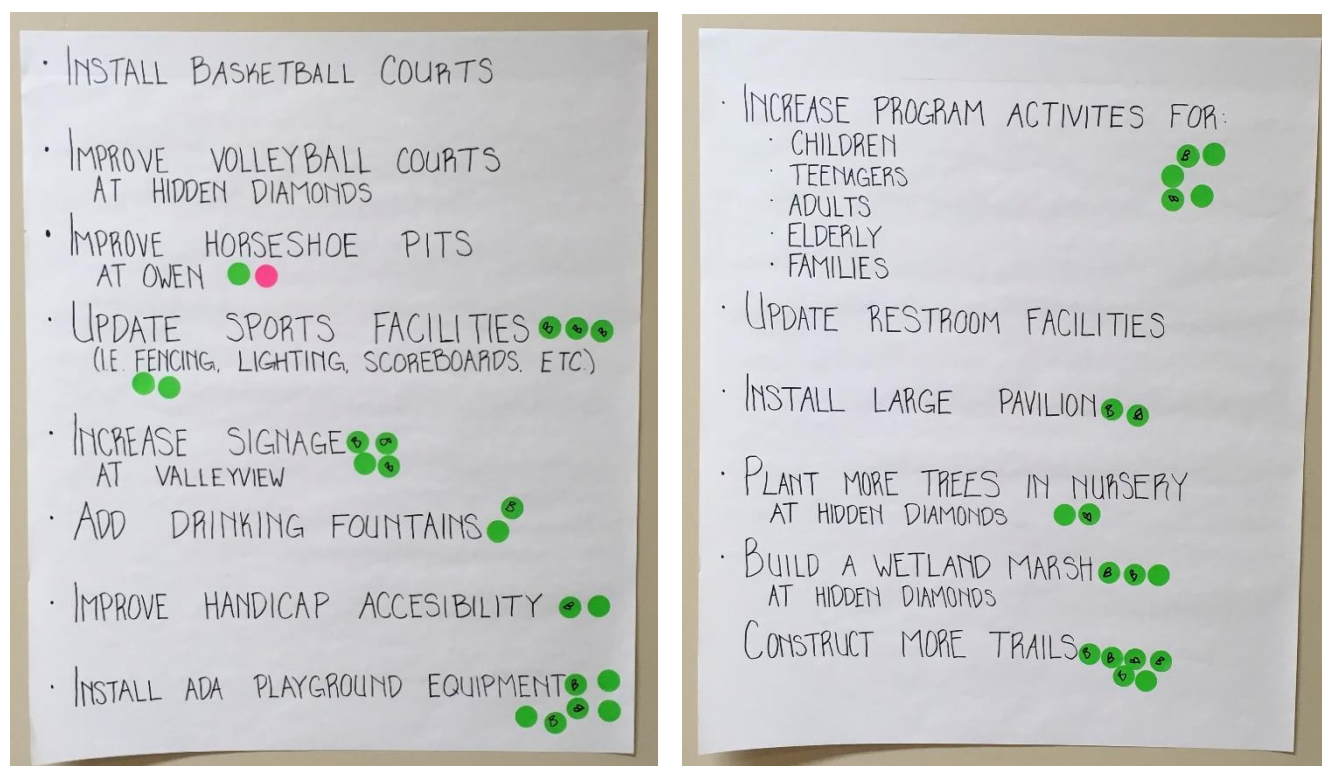 · INSTALL BASKETBALL COURTS
· IMPROVE VOLLEYBALL COURTS
AT HIDDEN DIAMONDS
· IMPROVE HORSESHOE PITS
AT OWEN
· UPDATE SPORTS FACILITIES B B B
(I.E. FENCING, LIGHTING, SCOREBOARDS. ETC.)
· INCREASE SIGNAGE B B
AT VALLEYVIEW B
· ADD DRINKING FOUNTAINS B
· IMPROVE HANDICAP ACCESIBILITY B
· INSTALL ADA PLAYGROUND EQUIPMENT B
B B
· INCREASE PROGRAM ACTIVITES FOR:
· CHILDREN B
· TEENAGERS
· ADULTS B
· ELDERLY
· FAMILIES
· UPDATE RESTROOM FACILITIES
· INSTALL LARGE PAVILION B B
· PLANT MORE TREES IN NURSERY
AT HIDDEN DIAMONDS B
· BUILD A WETLAND MARSH B B
AT HIDDEN DIAMONDS
CONSTRUCT MORE TRAILS B B B B
B